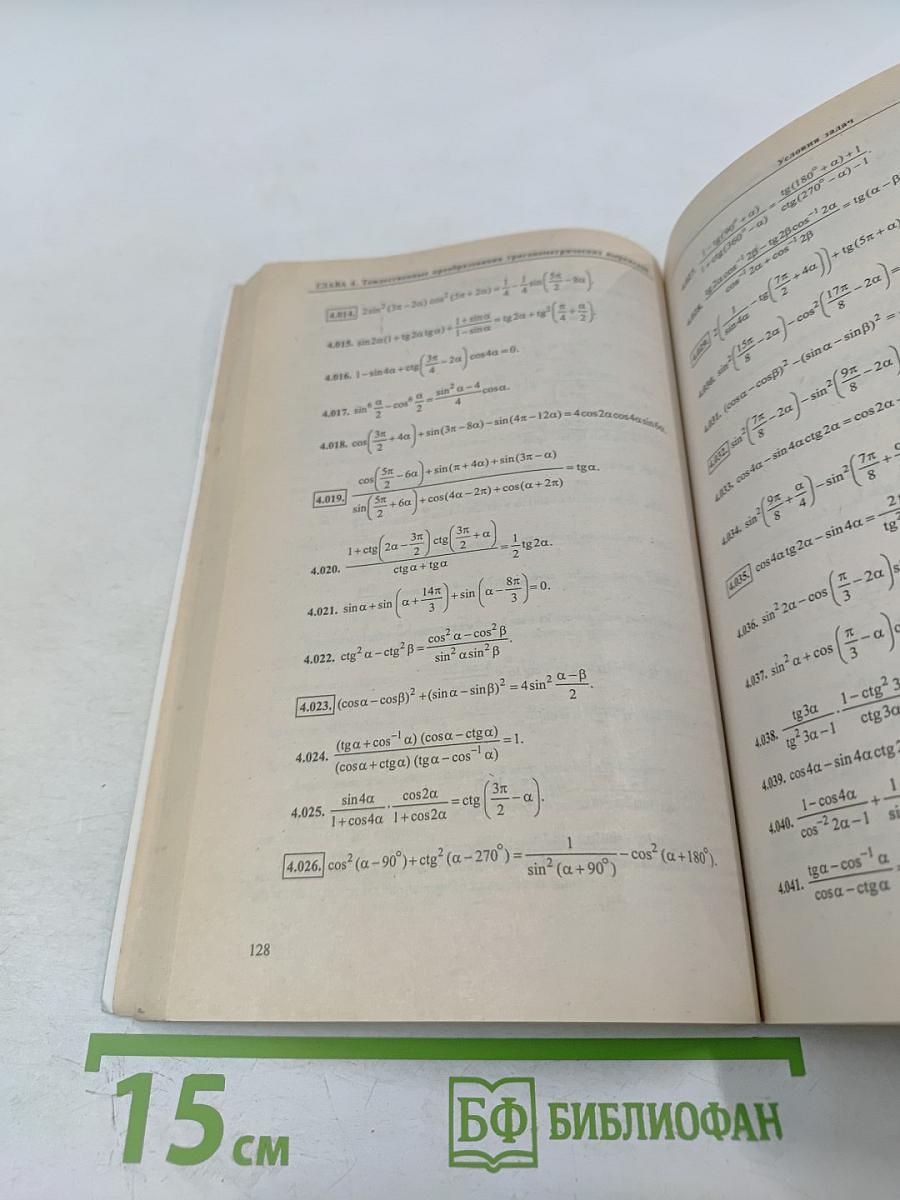 ГЛАВА 4. Тождественные преобразования тригонометрических выражений
4.014. 2sin²(3π−2α) cos²(5π+2α) = 1/4 − 1/4 sin(5π/2 − 8α).
4.015. sin2α(1+tg2α tgα) + (1+sinα)/(1−sinα) = tg2α + tg²(π/4 + α/2).
4.016. 1−sin4α+ctg(3π/4 − 2α) cos4α=0.
4.017. sin⁶ α/2 − cos⁶ α/2 = (sin²α−4)/4 cosα.
4.018. cos(3π/2 + 4α) + sin(3π−8α) − sin(4π−12α) = 4cos2α cos4α sin6α.
4.019. (cos(5π/2 − 6α) + sin(π+4α) + sin(3π−α))/(sin(5π/2 + 6α) + cos(4α−2π) + cos(α+2π)) = tgα.
4.020. (1+ctg(2α − 3π/2) ctg(3π/2 + α))/(ctgα + tgα) = 1/2 tg2α.
4.021. sinα + sin(α + 14π/3) + sin(α − 8π/3) = 0.
4.022. ctg²α − ctg²β = (cos²α − cos²β)/(sin²α sin²β).
4.023. (cosα−cosβ)² + (sinα−sinβ)² = 4sin² (α−β)/2.
4.024. ((tgα+cos⁻¹α) (cosα−ctgα))/((cosα+ctgα) (tgα−cos⁻¹α)) = 1.
4.025. sin4α/(1+cos4α) · cos2α/(1+cos2α) = ctg(3π/2 − α).
4.026. cos²(α−90°) + ctg²(α−270°) = 1/(sin²(α+90°)) − cos²(α+180°).
128
Условия задач
4.027. (1−tg(90°+α))/(1+ctg(360°−α)) = (tg(180°+α)+1)/(ctg(270°−α)−1).
4.028. (tg2α cos⁻¹2β − tg2β cos⁻¹2α)/(cos⁻¹2α + cos⁻¹2β) = tg(α−β
4.029. 2(1/sin4α − tg(7π/2 + 4α)) + tg(5π+α)
4.030. sin²(15π/8 − 2α) − cos²(17π/8 − 2α) =
4.031. (cosα−cosβ)² − (sinα−sinβ)² =
4.032. sin²(7π/8 − 2α) − sin²(9π/8 − 2α)
4.033. cos4α − sin4α ctg2α = cos2α −
4.034. sin²(9π/8 + α/4) − sin²(7π/8 +
4.035. cos4α tg2α − sin4α =
4.036. sin²2α − cos(π/3 − 2α)
4.037. sin²α + cos(π/3 − α)
4.038. tg3α/(tg²3α−1) · (1−ctg²3/ctg3α
4.039. cos4α − sin4α ctg
4.040. (1−cos4α)/(cos⁻²2α−1) +
4.041. (tgα−cos⁻¹α)/(cosα−ctgα)
15 см
БФ БИБЛИОФАН